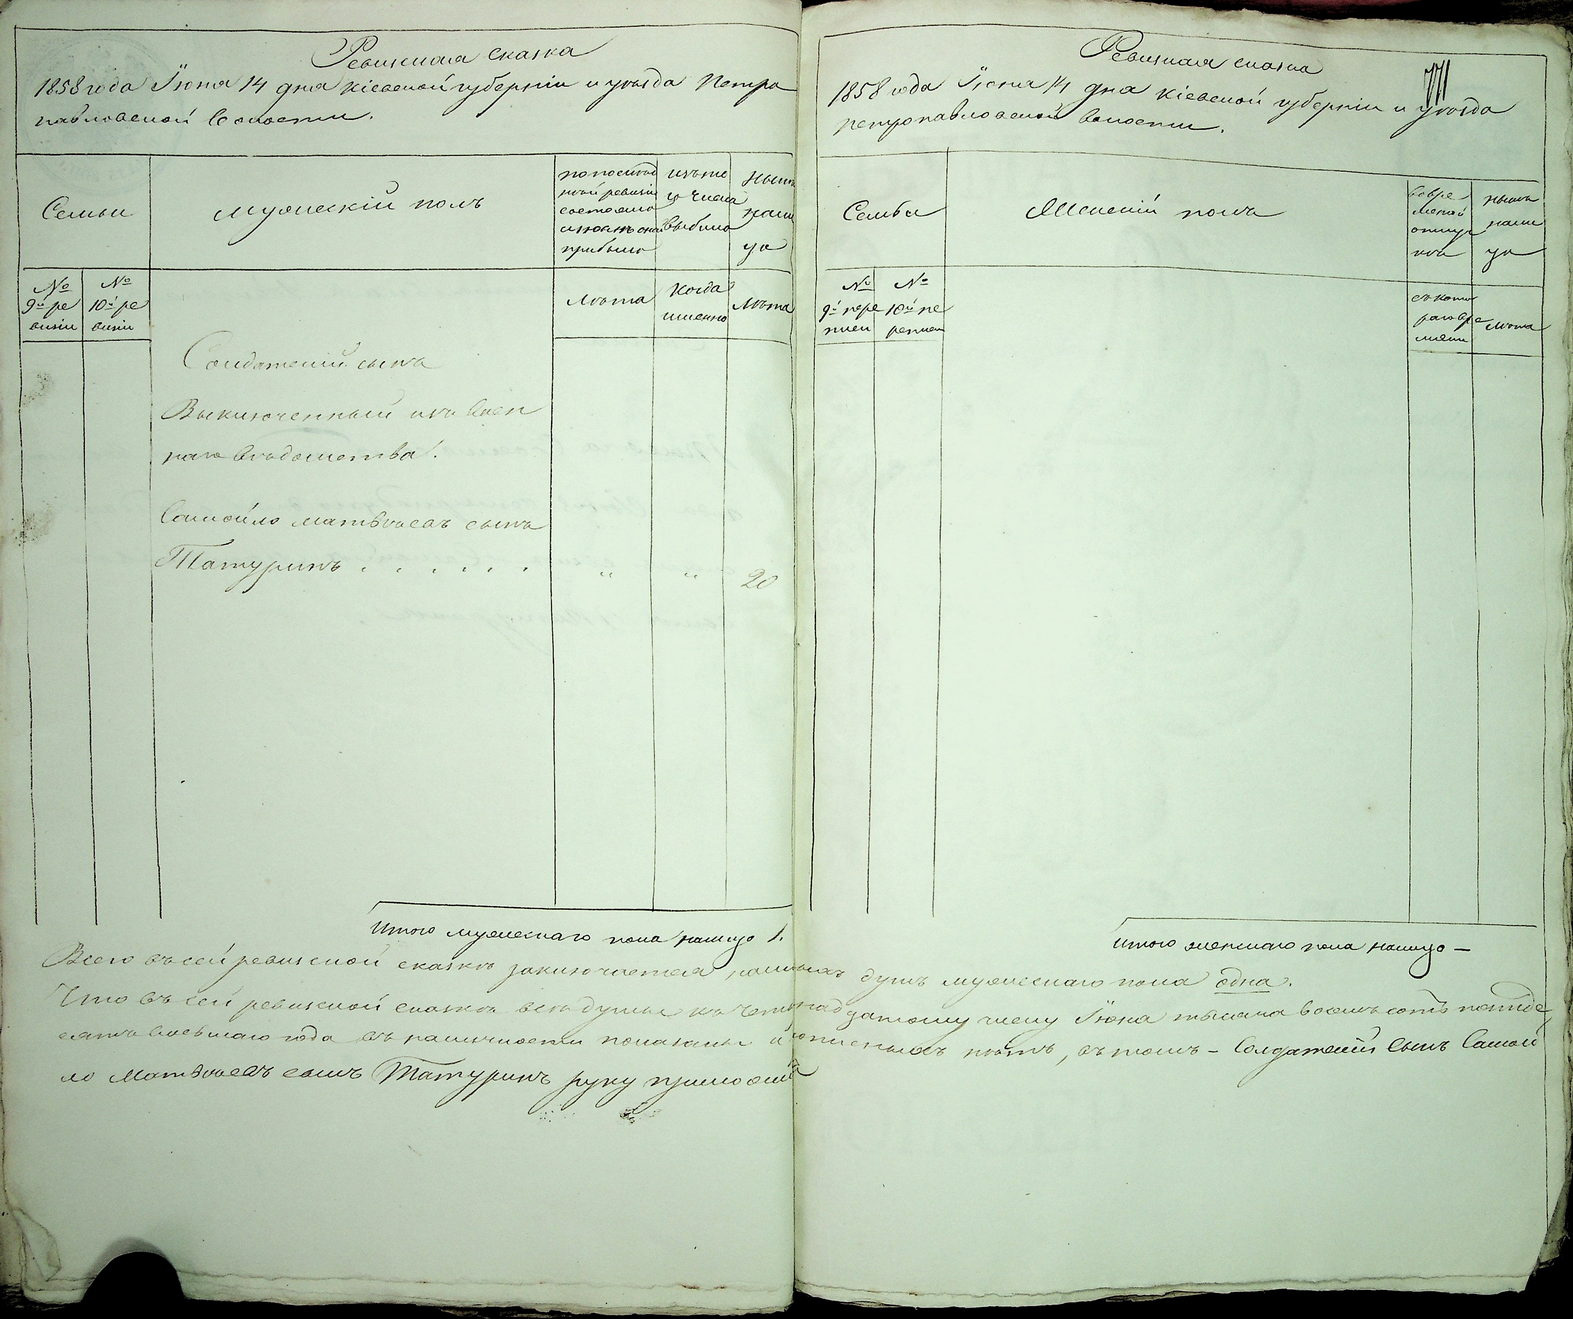 Ревизская сказка
1858 года Іюня 14 дня Кіевской губерніи и уѣзда Петро
павловской волости.
Семьи
Мужескій полъ
по послѣд
ней ревизіи
состояло
и послѣ оной
прибыло
изъ то
го числа
выбыло
Нынѣ
на ли
цо
№
9й ре
визіи
№
10й ре
визіи
Лѣта
Когда
именно
Лѣта
Солдатскій сынъ
Выключенный изъ Воен
наго вѣдомства:
Самойло Матвѣевъ сынъ
Татуринъ . . . . . . " " 20
Итого мужескаго пола налицо 1.
Ревизская сказка
771
1858 года Іюня 14 дня Кіевской губерніи и уѣзда
Петропавловской волости.
Семьи
Женскій полъ
во вре
менной
отлуч
кѣ
нынѣ
на ли
цо
№
9й пере
писи
№
10й пе
реписи
съ кото
раго вре
мени
Лѣта
Итого женскаго пола налицо —
Всего въ сей ревизской сказкѣ заключается наличныхъ душъ мужескаго пола одна.
Что въ сей ревизской сказкѣ всѣ души къ четырнадцатому числу Іюня тысяча восемь сотъ пятьде
сятъ восьмаго года въ наличности показаны и прописныхъ нѣтъ, въ томъ – Солдатскій сынъ Самой
ло Матвѣевъ сынъ Татуринъ руку приложилъ